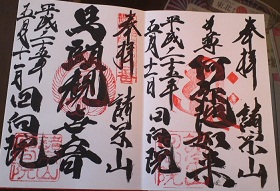 奉拝 諸宗山
阿弥陀如来
平成二十五年
五月十一日 回向院
奉拝 諸宗山
馬頭観世音
平成二十五年
五月十一日 回向院